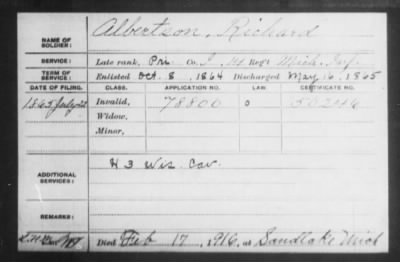 NAME OF SOLDIER: Albertson, Richard
SERVICE: Late rank, Pri Co. I, 14 Reg't Mich. Inf.
TERM OF SERVICE: Enlisted Oct. 8, 1864 Discharged May 16, 1865
DATE OF FILING. CLASS. APPLICATION NO. LAW CERTIFICATE NO.
1865 July Invalid, 78800 502246
Widow,
Minor,
ADDITIONAL SERVICES: H 3 Wis Cav.
REMARKS:
Died Feb 17, 1916, at Sandlake Mich